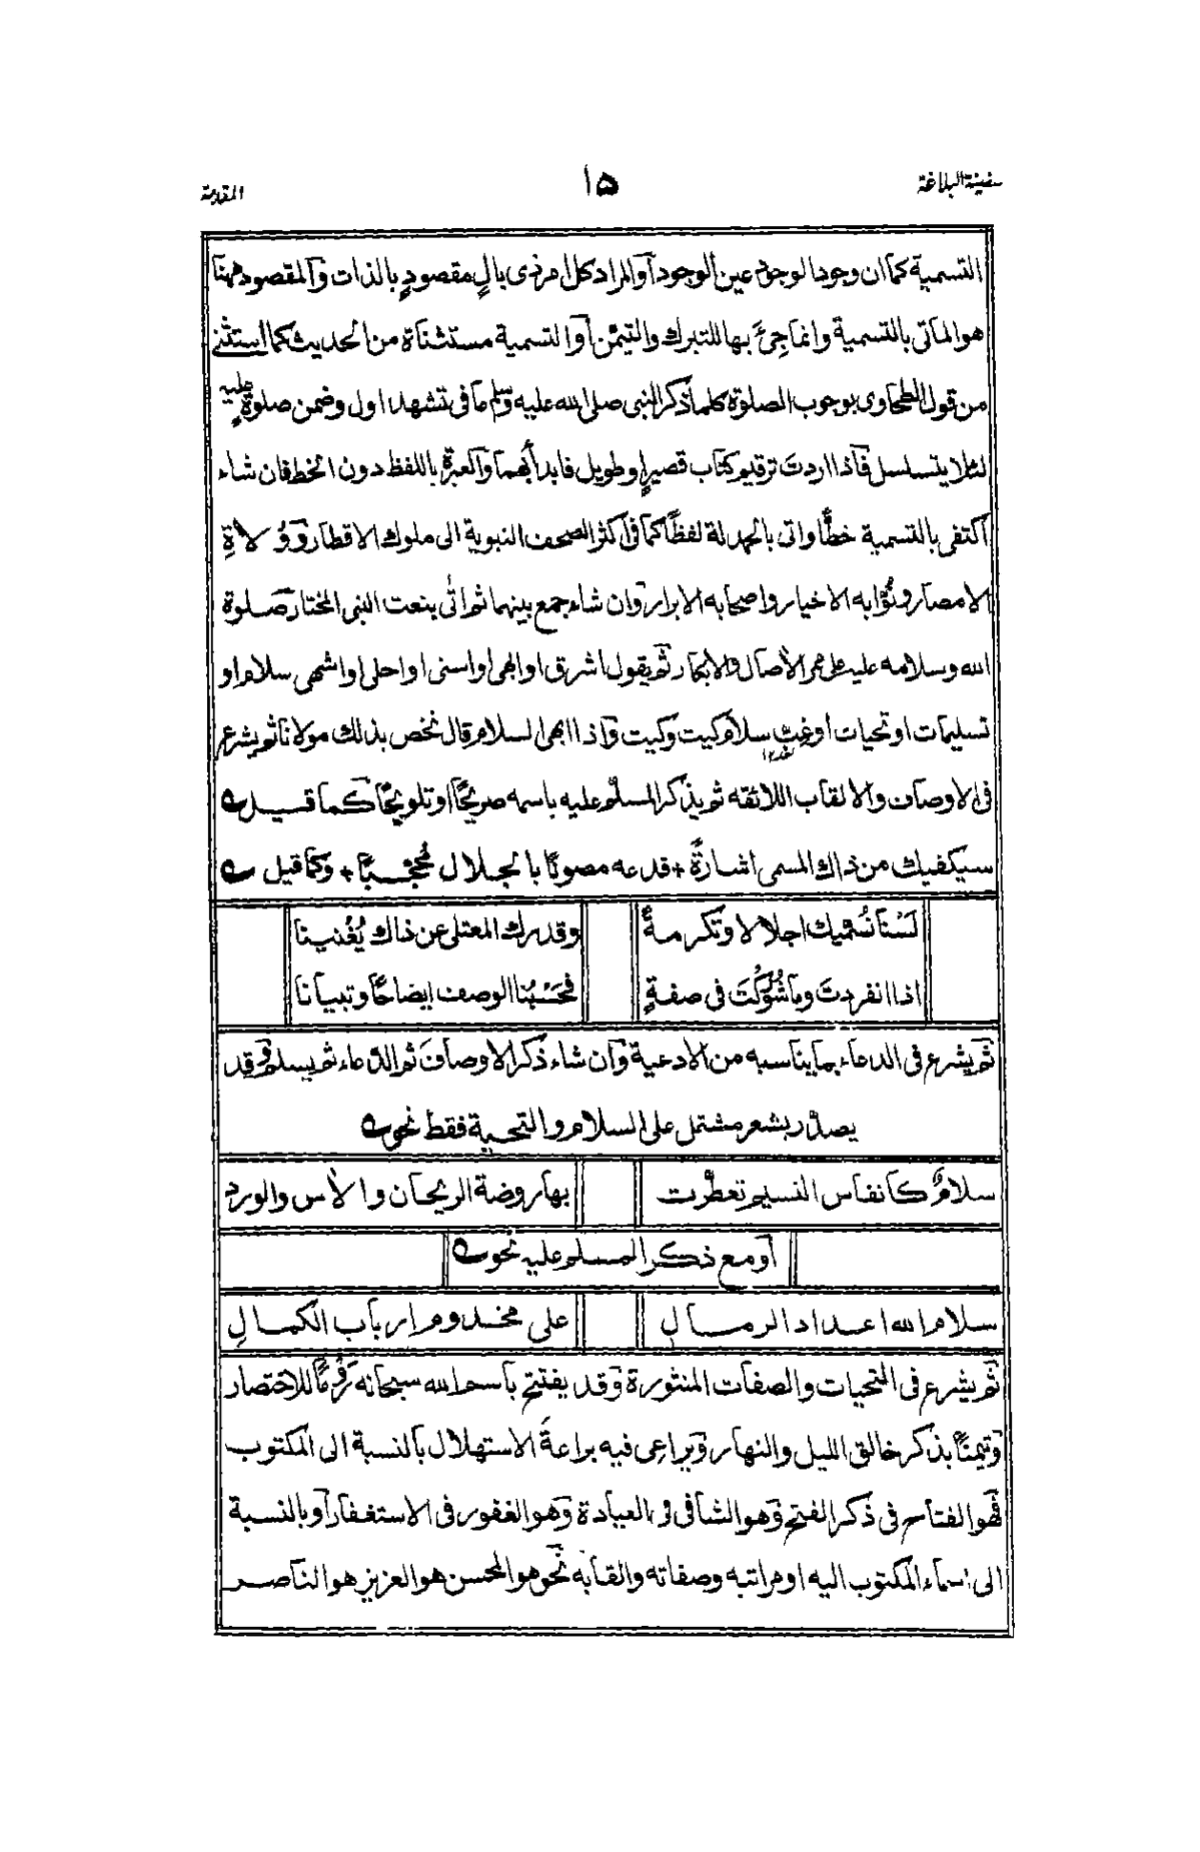 سفينة البلاغة
١٥
المقدمة
التسمية كما ان وجود الوجود عين الوجود او المراد كل امر ذى بالٍ مقصودٍ بالذات والمقصود ههنا
هو الماتى بالتسمية وانما جِئَ بها للتبرك والتيمّن او التسمية مستثناة من الحديث كما استثنى
من قول الطحاوى بوجوب الصلوة كلما ذكر النبى صلى الله عليه وسلم ما فى تشهد اول وضمن صلوةٍ عليه
لئلا يتسلسل فاذا اردتَ ترقيم كتاب قصيرٍ او طويل فابدأ بهما والعبرة باللفظ دون الخط فان شاء
اكتفى بالتسمية خطًّا واتى بالحمدلة لفظًا كما فى اكثر الصحف النبوية الى ملوك الاقطار ووُلاةِ
الامصار ونُوّابه الاخيار واصحابه الابرار وان شاء جمع بينهما ثم اتٰى بنعت النبى المختار صلوة
الله وسلامه عليه على ممر الاٰصال والابكار ثم يقول اشرق او ابهى او اسنى او احلى او اشهى سلام او
تسليمات او تحيات او غِبَّ سلام كيت وكيت واذا ابهى السلام قال نخص بذلك مولانا ثم يشرع
بعد ١٢
فى الاوصاف والالقاب اللائقه ثم يذكر المسلَّم عليه باسمه صريحًا او تلويحًا كما قيل
سيكفيك من ذاك المسمى اشارةٌ + فدعه مصونًا بالجلال مُحجَّبًا + وكما قيل
لَسْنَا نُسَمِّيك اجلالا وتكرمةً
وقدرك المعتلى عن ذاك يُغْنينا
اذا انفردتَ وما شُوْرِكْتَ فى صفةٍ
فَحَسْبُنا الوصف ايضاحًا وتبيانا
ثم يشرع فى الدعاء بما يناسبه من الادعية وان شاء ذكر الاوصاف ثم الدعاء ثم يسلم وقد
يصدّر بشعر مشتمل على السلام والتحية فقط نحو
سلامٌ كانفاس النسيم تعطّرت
بها روضة الريحان والاٰس والورد
او مع ذكر المسلم عليه نحو
سلام الله اعداد الرمالِ
على مخدوم ارباب الكمالِ
ثم يشرع فى التحيات والصفات المنثورة وقد يفتتح باسم الله سبحانه رَوْمًا للاختصار
وتيمنًا بذكر خالق الليل والنهار ويراعى فيه براعةَ الاستهلال بالنسبة الى المكتوب
فهو الفتاح فى ذكر الفتح وهو الشافى فى العيادة وهو الغفور فى الاستغفار او بالنسبة
الى اسماء المكتوب اليه او مراتبه وصفاته والقابه نحو هو المحسن هو العزيز هو الناصر